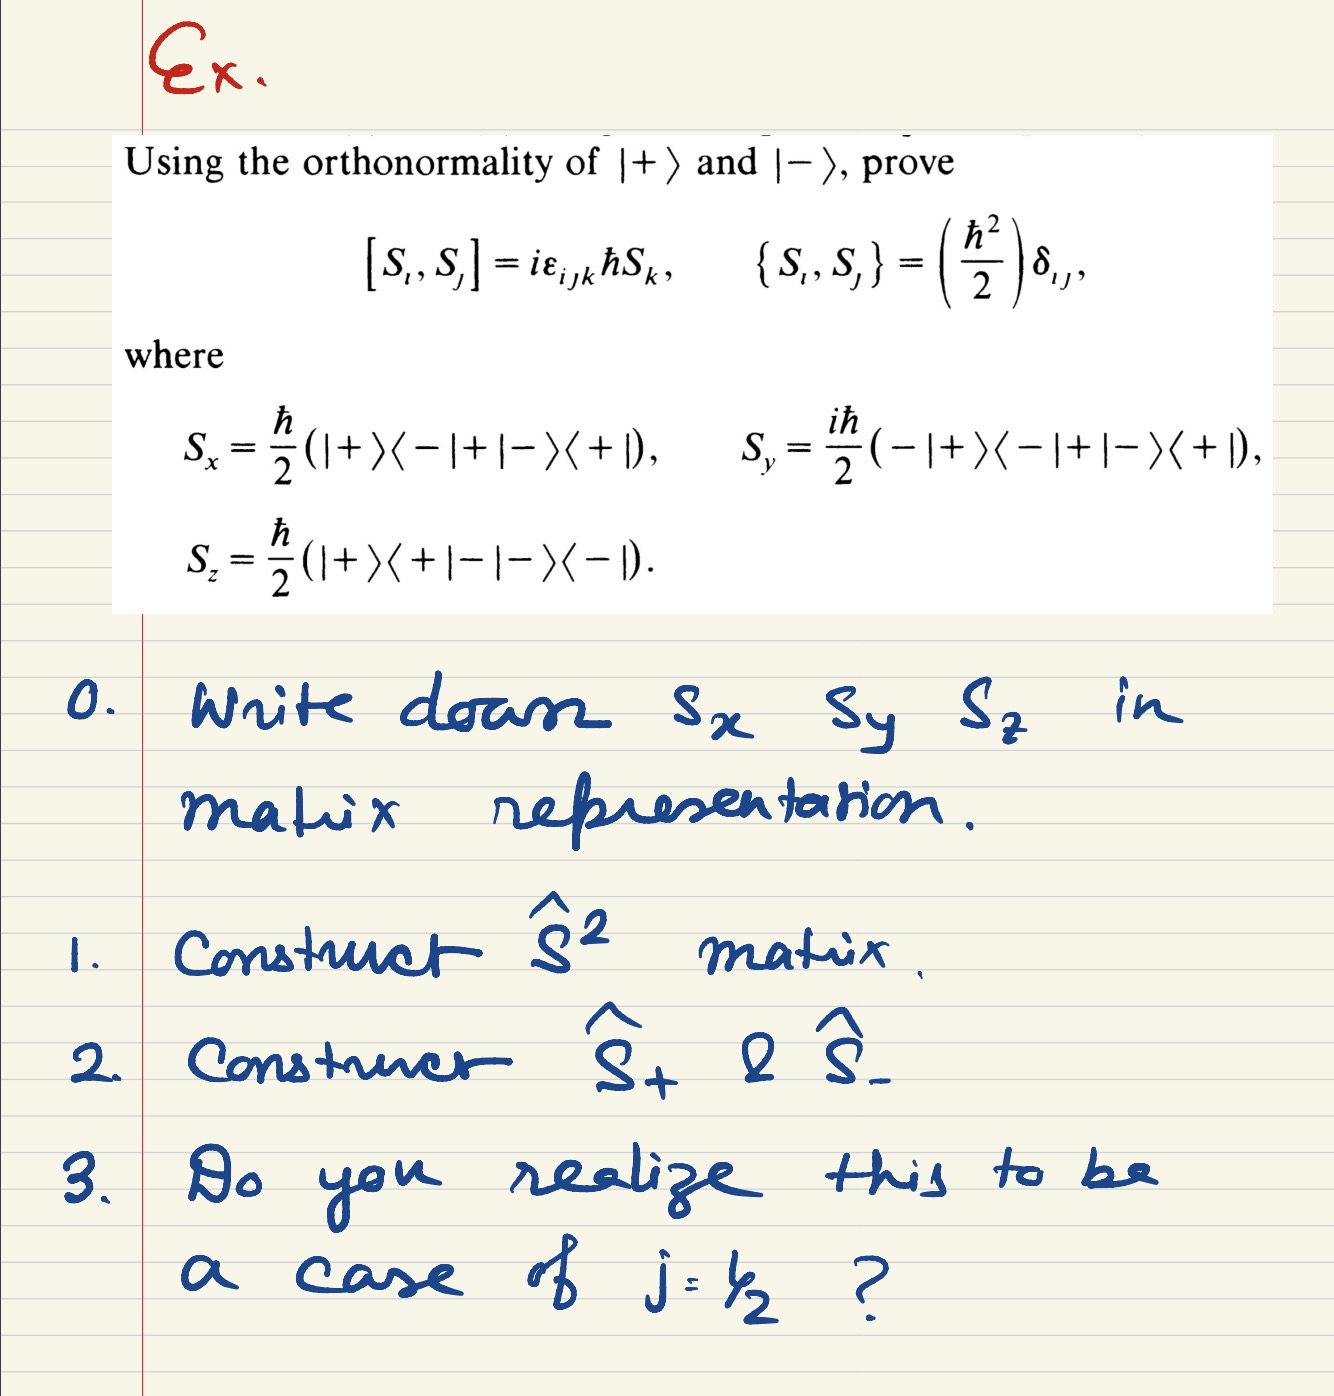 Ex.
Using the orthonormality of |+⟩ and |−⟩, prove
[Sᵢ, Sⱼ] = iεᵢⱼₖħSₖ, {Sᵢ, Sⱼ} = (ħ²/2)δᵢⱼ,
where
Sₓ = ħ/2 (|+⟩⟨−|+|−⟩⟨+|), S_y = iħ/2 (−|+⟩⟨−|+|−⟩⟨+|),
S_z = ħ/2 (|+⟩⟨+|−|−⟩⟨−|).
0. Write down Sx Sy Sz in
matrix representation.
1. Construct Ŝ² matrix.
2. Construct Ŝ₊ & Ŝ₋
3. Do you realize this to be
a case of j = 1/2 ?